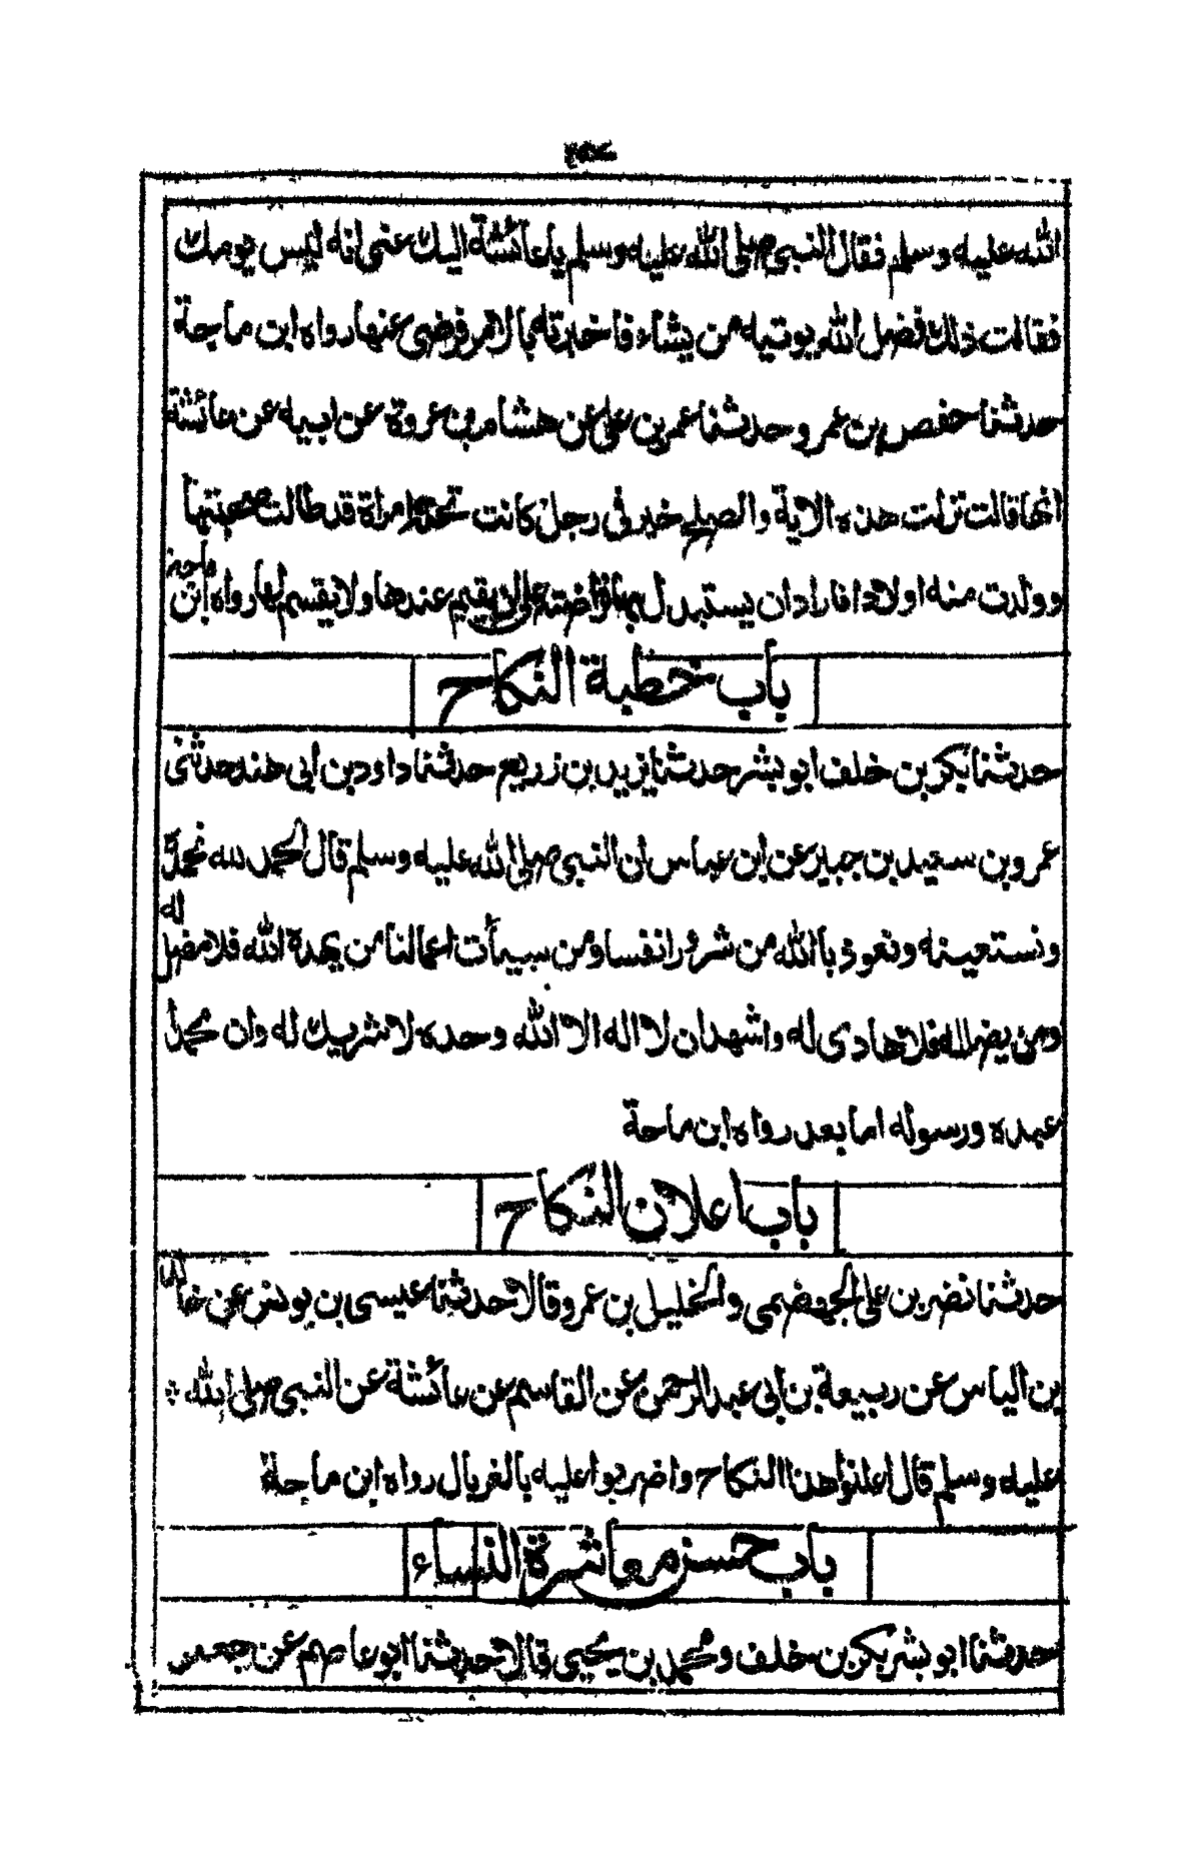 الله عليه وسلم فقال النبي صلى الله عليه وسلم يا عائشة اليك عنى انه ليس يومك
فقالت ذلك فضل الله يوتيه من يشاء فاخبرته بالامر فرضى عنها رواه ابن ماجة
حدثنا حفص بن عمرو حدثنا عمر بن على عن هشام بن عروة عن ابيه عن عائشة
انها قالت نزلت هذه الاية والصلح خير فى رجل كانت تحته امراة قد طالت صحبتها
وولدت منه اولادا فاراد ان يستبدل بها فراضته على ان يقيم عندها ولا يقسم لها رواه ابن ماجة
باب خطبة النكاح
حدثنا بكر بن خلف ابو بشر حدثنا يزيد بن زريع حدثنا داود بن ابى هند حدثنى
عمرو بن سعيد بن جبير عن ابن عباس ان النبى صلى الله عليه وسلم قال الحمد لله نحمده
ونستعينه ونعوذ باالله من شرور انفسا ومن سيأت اعمالنا من يهدة الله فلا مضل له
ومن يضلله فلا هادى له واشهد ان لا اله الا الله وحده لا شريك له وان محمدا
عبده ورسوله اما بعد رواه ابن ماجة
باب اعلان النكاح
حدثنا نضر بن على الجهضمى والخليل بن عمرو قالا حدثنا عيسى بن يونس عن خالد
بن الياس عن ربيعة بن ابى عبد الرحمن عن القاسم عن عائشة عن النبى صلى الله
عليه وسلم قال اعلنوا هذا النكاح واضربوا عليه بالغربال رواه ابن ماجة
باب حسن معاشرة النساء
حدثنا ابو بشر بكر بن خلف ومحمد بن يحيى قالا حدثنا ابو عاصم عن جعفر